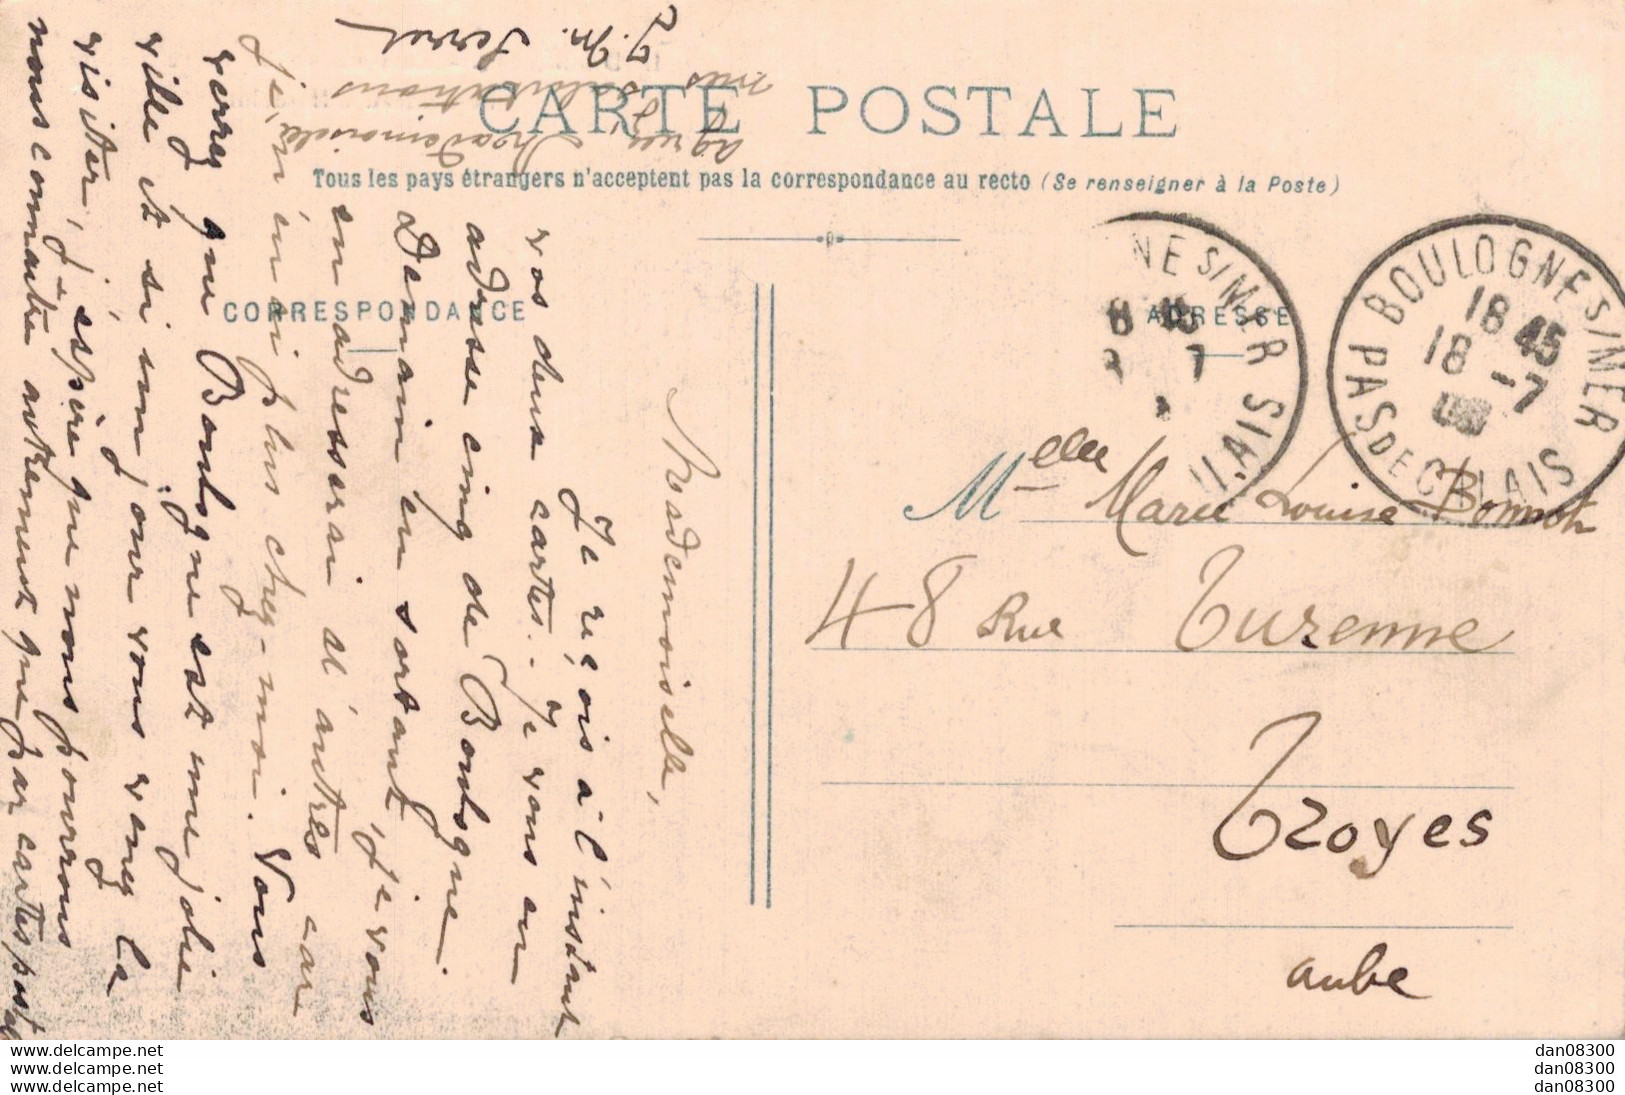 CARTE POSTALE
Tous les pays étrangers n'acceptent pas la correspondance au recto (Se renseigner à la Poste)
CORRESPONDANCE
ADRESSE
Mademoiselle,
Je reçois à l'instant
vos deux cartes. Je vous en
adresse cinq de Boulogne.
Demain en sortant, je vous
en adresserai d'autres car
je n'en ai plus chez-moi. Vous
verrez que Boulogne est une jolie
ville et si un jour vous venez la
visiter, j'espère que nous pourrons
nous connaître autrement que par cartes postales
agréez Mademoiselle,
mes salutations
J. M.
NE S/MER
AIS
8 45
7
BOULOGNE S/MER
18 45
18 -7
PAS DE CALAIS
Melle Marie Louise Bonnot
48 Rue Turenne
Troyes
aube
www.delcampe.net
www.delcampe.net
www.delcampe.net
dan08300
dan08300
dan08300